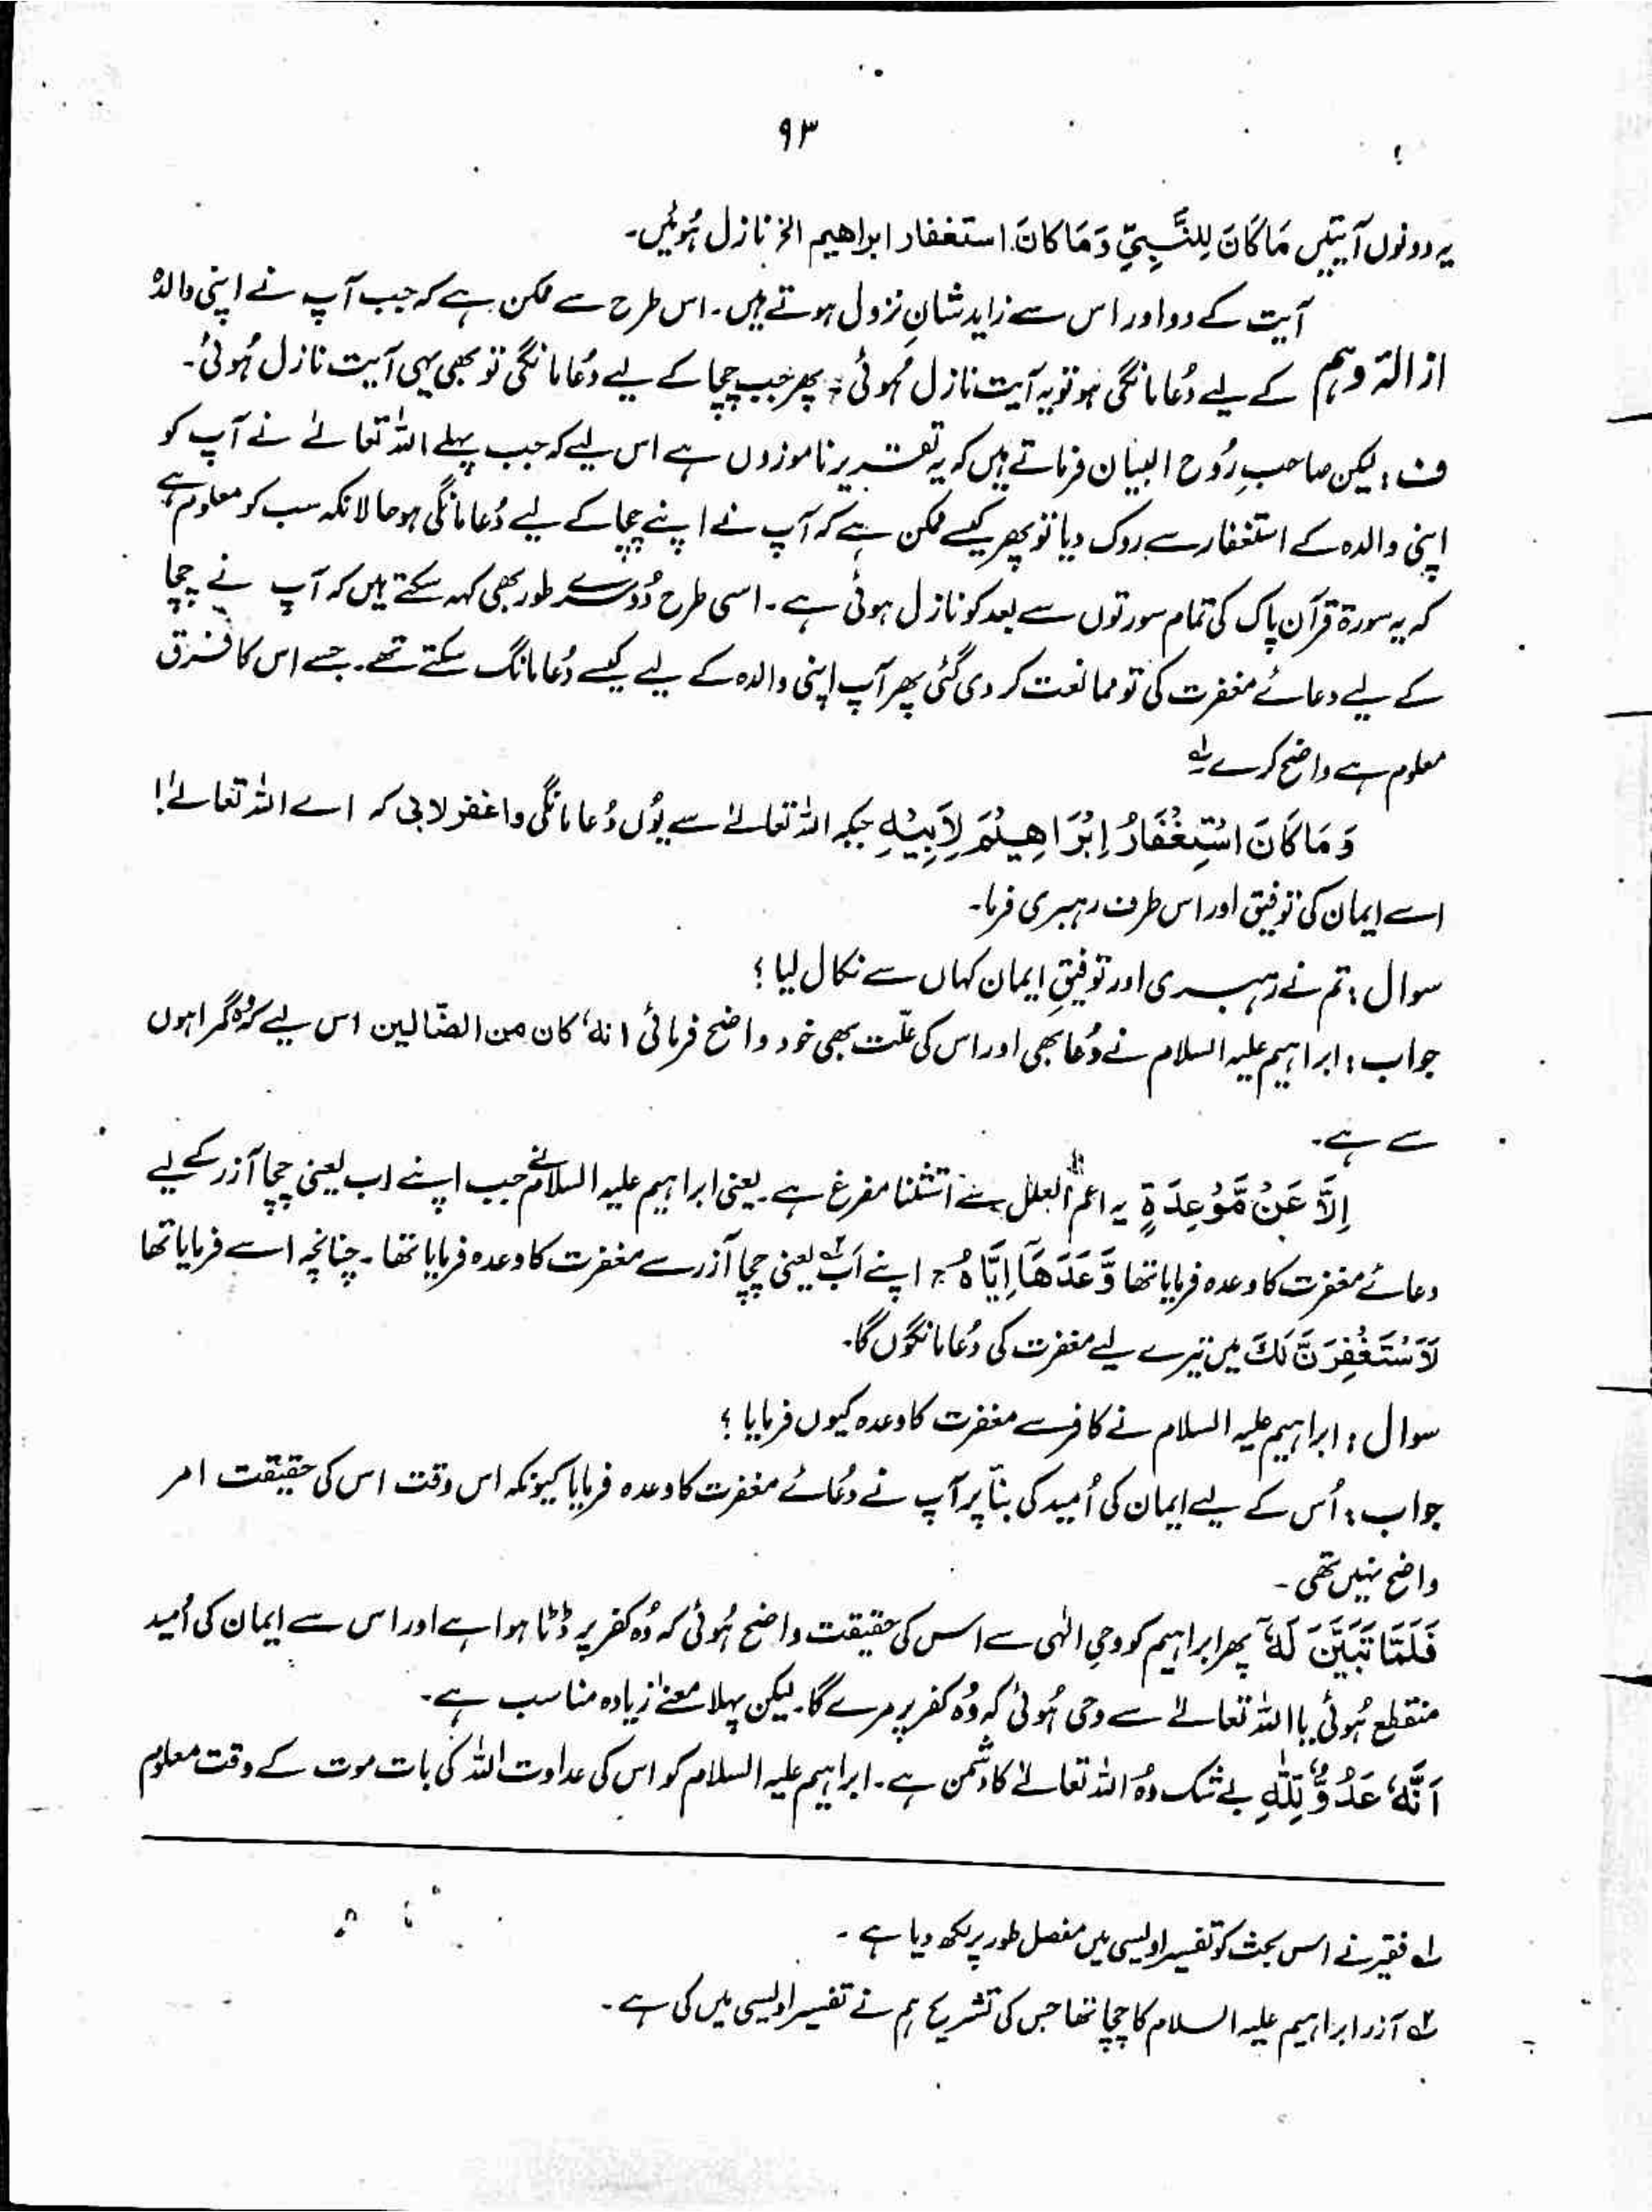 ۹۳
یہ دونوں آیتیں مَا کَانَ لِلنَّبِیِّ وَمَا کَانَ استغفار ابراھیم الخ نازل ہُوئیں۔
آیت کے دو اور اس سے زاید شانِ نزول ہوتے ہیں۔ اس طرح سے ممکن ہے کہ جب آپ نے اپنی والدہ
ازالۂ وہم کے لیے دُعا مانگی ہو تو یہ آیت نازل ہُوئی، پھر جب چچا کے لیے دُعا مانگی تو بھی یہی آیت نازل ہُوئی۔
ف : لیکن صاحبِ رُوح البیان فرماتے ہیں کہ یہ تقدیر ناموزوں ہے اس لیے کہ جب پہلے اللہ تعالےٰ نے آپ کو
اپنی والدہ کے استغفار سے روک دیا تو پھر کیسے ممکن ہے کہ آپ نے اپنے چچا کے لیے دُعا مانگی ہو حالانکہ سب کو معلوم ہے
کہ یہ سورۃ قرآن پاک کی تمام سورتوں سے بعد کو نازل ہوئی ہے۔ اسی طرح دُوسرے طور بھی کہہ سکتے ہیں کہ آپ نے چچا
کے لیے دعائے مغفرت کی تو ممانعت کر دی گئی پھر آپ اپنی والدہ کے لیے کیسے دُعا مانگ سکتے تھے۔ جسے اس کا فرق
معلوم ہے واضح کرے لہ
وَمَا کَانَ اسْتِغْفَارُ اِبْرَاھِیْمَ لِاَبِیْہِ جبکہ اللہ تعالےٰ سے یُوں دُعا مانگی واغفر لابی کہ اے اللہ تعالےٰ!
اسے ایمان کی توفیق اور اس طرف رہبری فرما۔
سوال : تم نے رہبری اور توفیقِ ایمان کہاں سے نکال لیا ؟
جواب : ابراہیم علیہ السلام نے دُعا بھی اور اس کی علّت بھی خود واضح فرمائی انہ، کان من الضّالین اس لیے کہ وُہ گمراہوں
سے ہے۔
اِلَّا عَنْ مَّوْعِدَۃٍ یہ اعم العلل سے استثنا مفرغ ہے۔ یعنی ابراہیم علیہ السلام نے جب اپنے اب یعنی چچا آزر کے لیے
دعائے مغفرت کا وعدہ فرمایا تھا وَّعَدَھَآ اِیَّاہُ ج اپنے اَب یعنی چچا آزر سے مغفرت کا وعدہ فرمایا تھا۔ چنانچہ اسے فرمایا تھا
لَاَسْتَغْفِرَنَّ لَکَ میں تیرے لیے مغفرت کی دُعا مانگوں گا۔
سوال : ابراہیم علیہ السلام نے کافر سے مغفرت کا وعدہ کیوں فرمایا ؟
جواب : اُس کے لیے ایمان کی اُمید کی بنا پر آپ نے دُعائے مغفرت کا وعدہ فرمایا کیونکہ اس وقت اس کی حقیقت امر
واضح نہیں تھی۔
فَلَمَّا تَبَیَّنَ لَہٗٓ پھر ابراہیم کو وحیِ الٰہی سے اس کی حقیقت واضح ہُوئی کہ وُہ کفر پر ڈٹا ہوا ہے اور اس سے ایمان کی اُمید
منقطع ہُوئی یا اللہ تعالےٰ سے وحی ہُوئی کہ وُہ کفر پر مرے گا۔ لیکن پہلا معنےٰ زیادہ مناسب ہے۔
اَنَّہٗ عَدُوٌّ لِّلّٰہِ بے شک وُہ اللہ تعالےٰ کا دشمن ہے۔ ابراہیم علیہ السلام کو اس کی عداوت اللہ کی بات موت کے وقت معلوم
لہ فقیر نے اس بحث کو تفسیر اویسی میں مفصل طور پر لکھ دیا ہے۔
۲ہ آزر ابراہیم علیہ السلام کا چچا تھا جس کی تشریح ہم نے تفسیر اویسی میں کی ہے۔